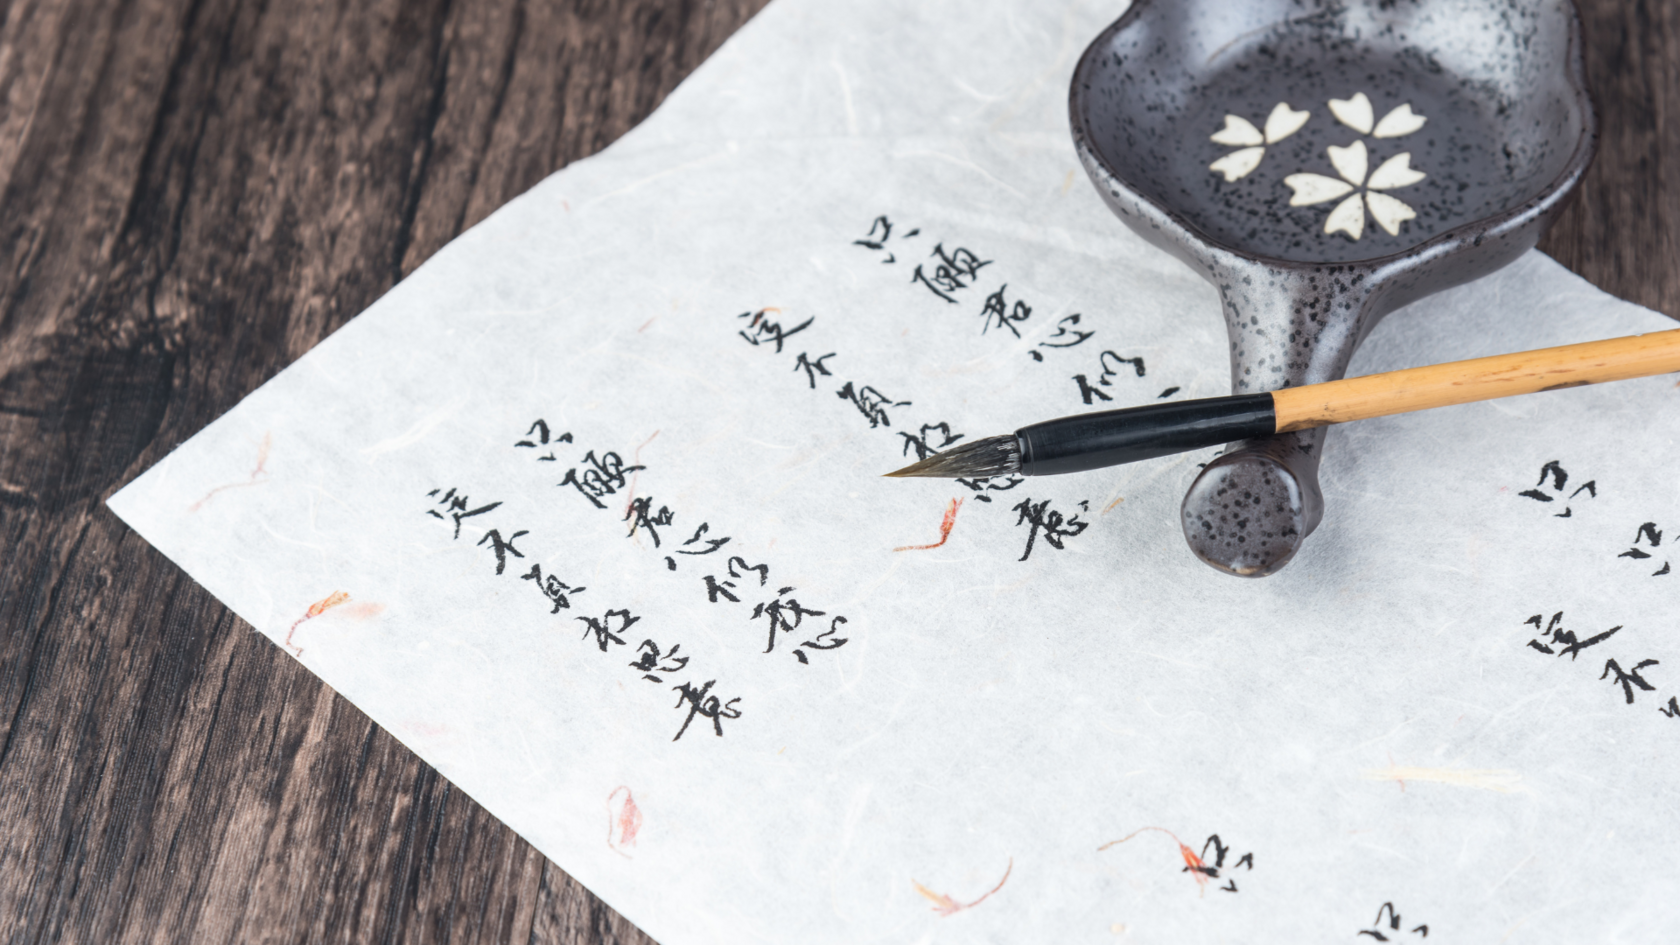 只願君心似
定不負相思意
只願君心似我心
定不負相思意
只
只
定不
只
只